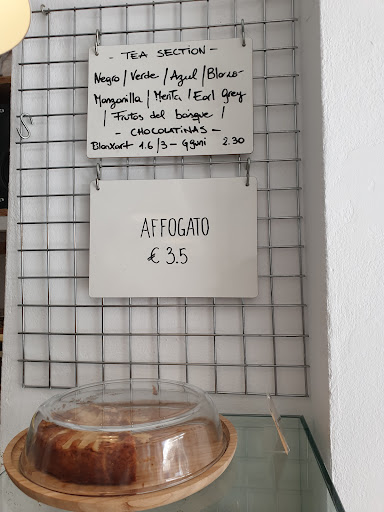 - TEA SECTION -
Negro / Verde / Azul / Blanco -
Manzanilla / Menta / Earl Grey
/ Frutas del bosque /
- CHOCOLATINAS -
Blanxart 1.6/3 - Gguni 2.30
AFFOGATO
€ 3.5